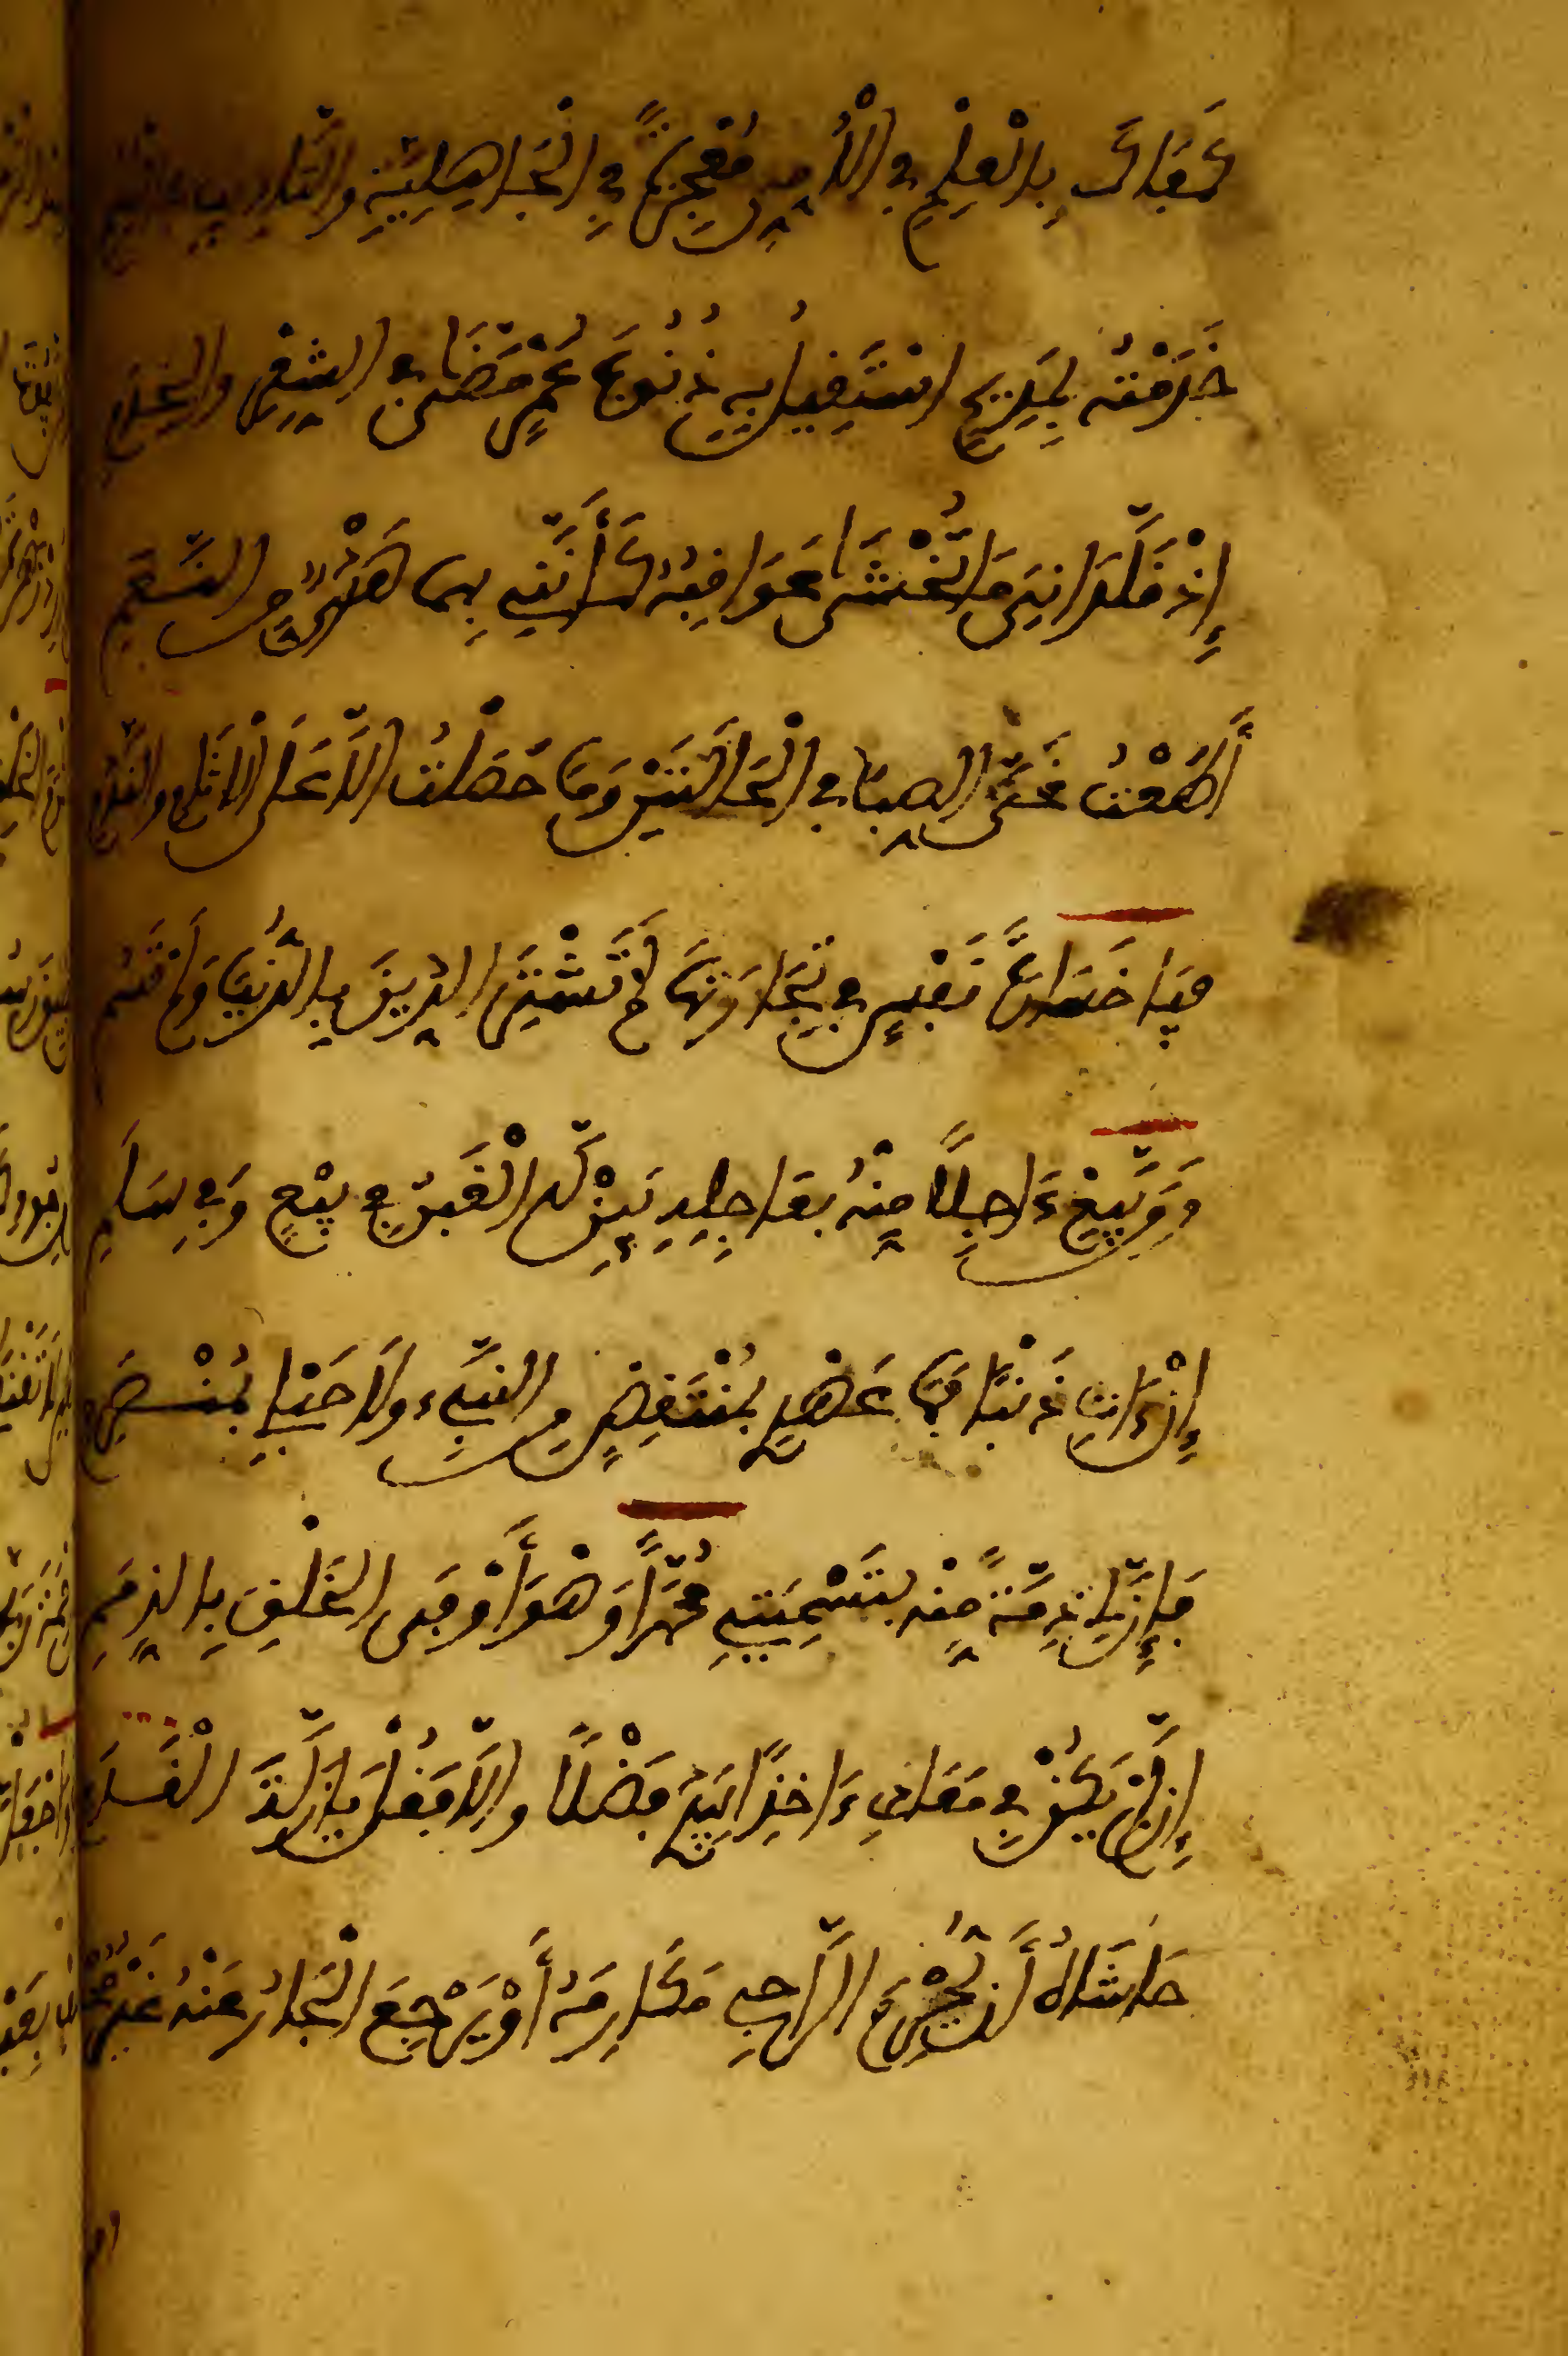 كَفَاكَ بِالْعِلْمِ فِي الْأُمِّيِّ مُعْجِزَةً فِي الْجَاهِلِيَّةِ وَالتَّادِيبِ فِي الْيُتُمِ
خَدَمْتُهُ بِمَدِيحٍ اسْتَقِيلُ بِهِ ذُنُوبَ عُمْرٍ مَضَى فِي الشِّعْرِ وَالْخِدَمِ
إِذْ قَلَّدَانِيَ مَا تُخْشَى عَوَاقِبُهُ كَأَنَّنِي بِهِمَا هَدْيٌ مِنَ النَّعَمِ
أَطَعْتُ غَيَّ الصِّبَا فِي الْحَالَتَيْنِ وَمَا حَصَلْتُ إِلَّا عَلَى الْاثَامِ وَالنَّدَمِ
فَيَا خَسَارَةَ نَفْسٍ فِي تِجَارَتِهَا لَمْ تَشْتَرِ الدِّينَ بِالدُّنْيَا وَلَمْ تَسُمِ
وَمَن يَّبِعْ ءَاجِلًا مِنْهُ بِعَاجِلِهِ يَبِنْ لَّهُ الْغَبْنُ فِي بَيْعٍ وَفِي سَلَمِ
إِنْ ءَاتِ ذَنْبًا فَمَا عَهْدِي بِمُنْتَقِضٍ مِنَ النَّبِيِّ وَلَا حَبْلِي بِمُنْصَرِمِ
فَإِنَّ لِي ذِمَّةً مِنْهُ بِتَسْمِيَتِي مُحَمَّدًا وَهْوَ أَوْفَى الْخَلْقِ بِالذِّمَمِ
إِن لَّمْ يَكُنْ فِي مَعَادِي ءَاخِذًا بِيَدِي فَضْلًا وَإِلَّا فَقُلْ يَا زَلَّةَ الْقَدَمِ
حَاشَاهُ أَن يُّحْرِمَ الرَّاجِي مَكَارِمَهُ أَوْ يَرْجِعَ الْجَارُ مِنْهُ غَيْرَ مُحْتَرَمِ